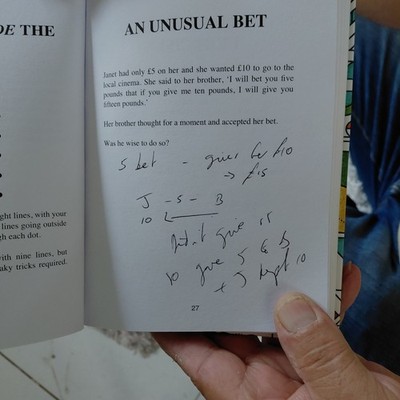 DE THE
ght lines, with your
lines going outside
gh each dot.
with nine lines, but
aky tricks required.
AN UNUSUAL BET
Janet had only £5 on her and she wanted £10 to go to the
local cinema. She said to her brother, 'I will bet you five
pounds that if you give me ten pounds, I will give you
fifteen pounds.'
Her brother thought for a moment and accepted her bet.
Was he wise to do so?
5 bet - gives her £10
→ £15
J - 5 - B
10
give 15
so give 5 to B
+ J kept 10
27